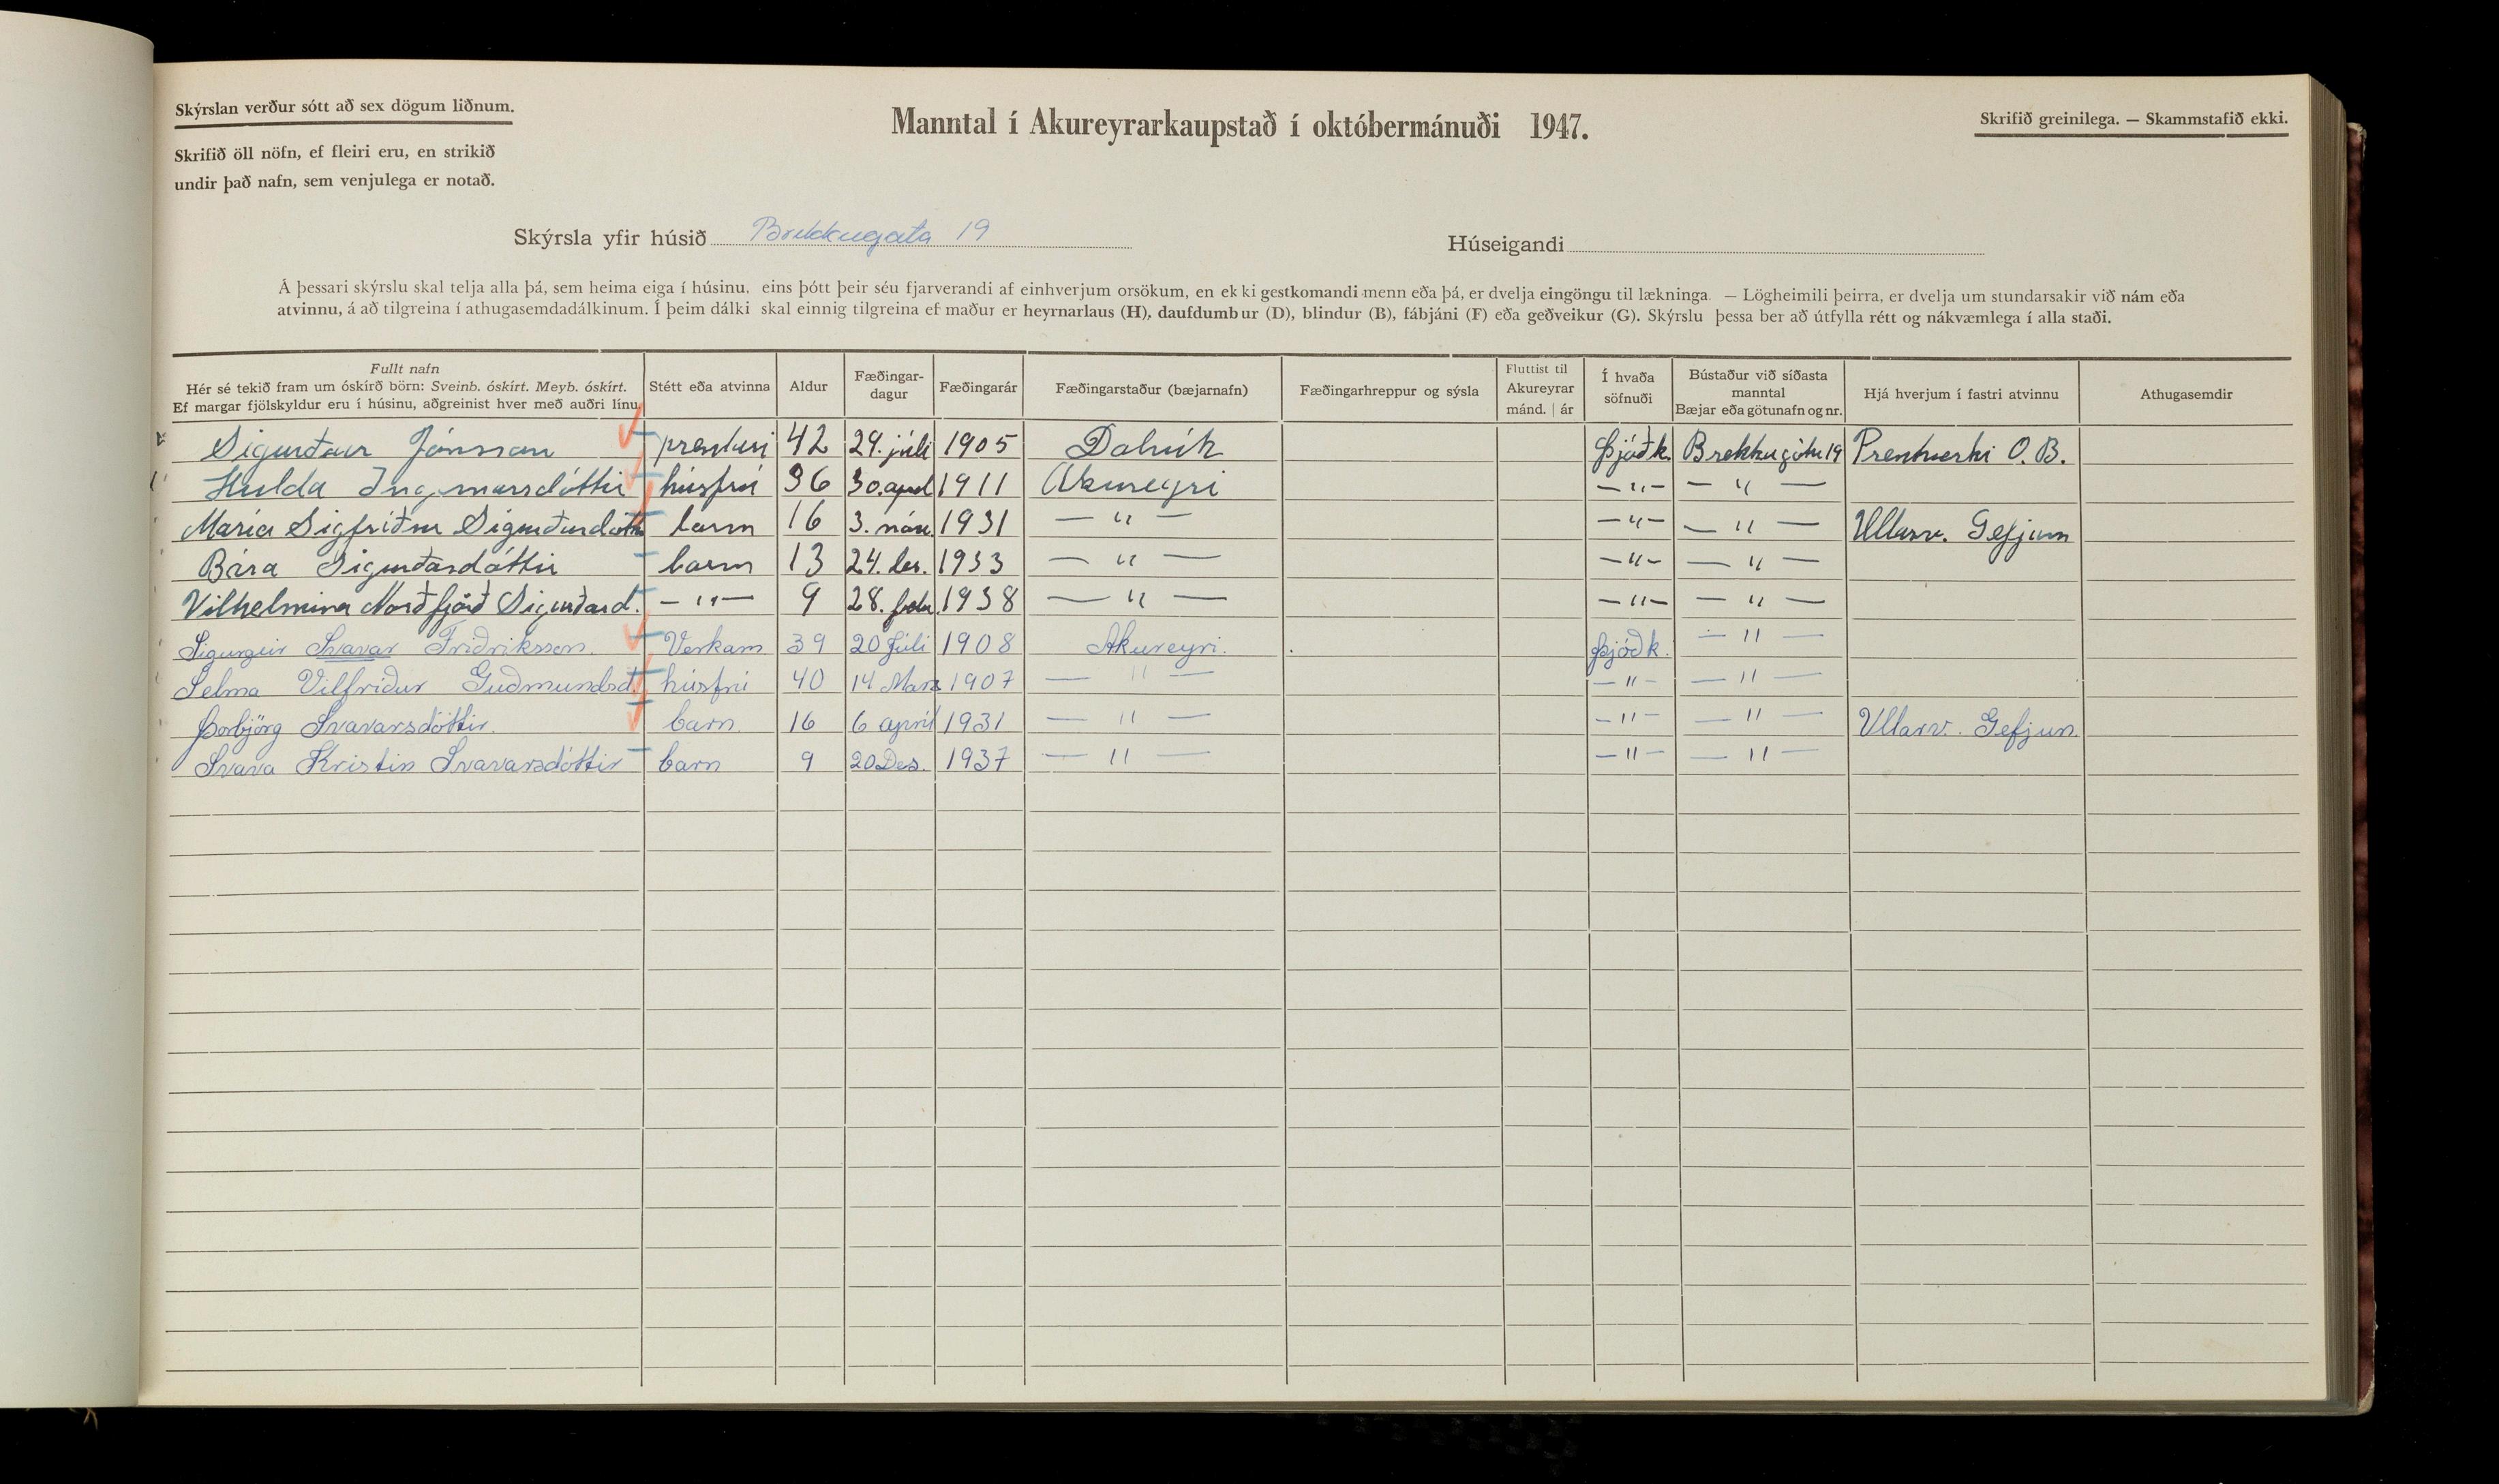 Skýrslan verður sótt að sex dögum liðnum.
Manntal í Akureyrarkaupstað í októbermánuði 1947.
Skrifið greinilega. — Skammstafið ekki.
Skrifið öll nöfn, ef fleiri eru, en strikið
undir það nafn, sem venjulega er notað.
Skýrsla yfir húsið Brekkugata 19 Húseigandi
Á þessari skýrslu skal telja alla þá, sem heima eiga í húsinu, eins þótt þeir séu fjarverandi af einhverjum orsökum, en ekki gestkomandi menn eða þá, er dvelja eingöngu til lækninga. — Lögheimili þeirra, er dvelja um stundarsakir við nám eða
atvinnu, á að tilgreina í athugasemdadálkinum. Í þeim dálki skal einnig tilgreina ef maður er heyrnarlaus (H), daufdumbur (D), blindur (B), fábjáni (F) eða geðveikur (G). Skýrslu þessa ber að útfylla rétt og nákvæmlega í alla staði.
Fullt nafn
Hér sé tekið fram um óskírð börn: Sveinb. óskírt. Meyb. óskírt.
Ef margar fjölskyldur eru í húsinu, aðgreinist hver með auðri línu.
Stétt eða atvinna
Aldur
Fæðingar-
dagur
Fæðingarár
Fæðingarstaður (bæjarnafn)
Fæðingarhreppur og sýsla
Fluttist til
Akureyrar
mánd. | ár
Í hvaða
söfnuði
Bústaður við síðasta
manntal
Bæjar eða götunafn og nr.
Hjá hverjum í fastri atvinnu
Athugasemdir
Sigurður Jónsson prentari 42 29. júlí 1905 Dalvík Þjóðk. Brekkugötu 19 Prentverki O. B.
Hulda Ingimarsdóttir húsfrú 36 30. apríl 1911 Akureyri — " — — " —
María Sigfríður Sigurðardóttir barn 16 3. 1931 — " — — " — — " — Ullarv. Gefjun
Bára Sigurðardóttir barn 13 24. des. 1933 — " — — " — — " —
Vilhelmína Norðfjörð Sigurðard. — " — 9 28. febr. 1938 — " — — " — — " —
Sigurgeir Svavar Friðriksson Verkam. 39 20 Júlí 1908 Akureyri. Þjóðk. — " —
Selma Vilfríður Guðmundsd. húsfrú 40 14 Mars 1907 — " — — " — — " —
Þorbjörg Svavarsdóttir. barn. 16 6 apríl 1931 — " — — " — — " — Ullarv. Gefjun.
Svava Kristín Svavarsdóttir barn 9 20 Des. 1937 — " — — " — — " —